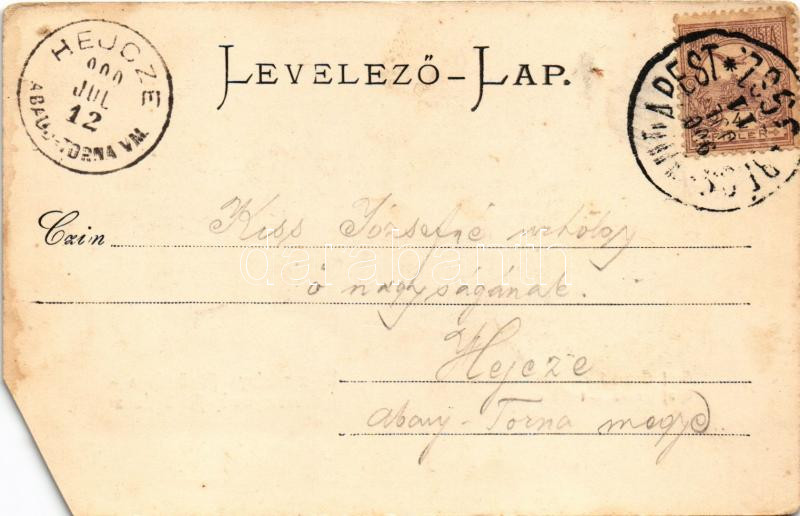 HEJCZE
900
JUL
12
ABAUJ-TORNA VM.
LEVELEZŐ-LAP.
BUDAPEST
Czim
Kiss Józsefné úrhölgy
ő nagyságának.
Hejcze
Abauj-Torna megye
darabanth